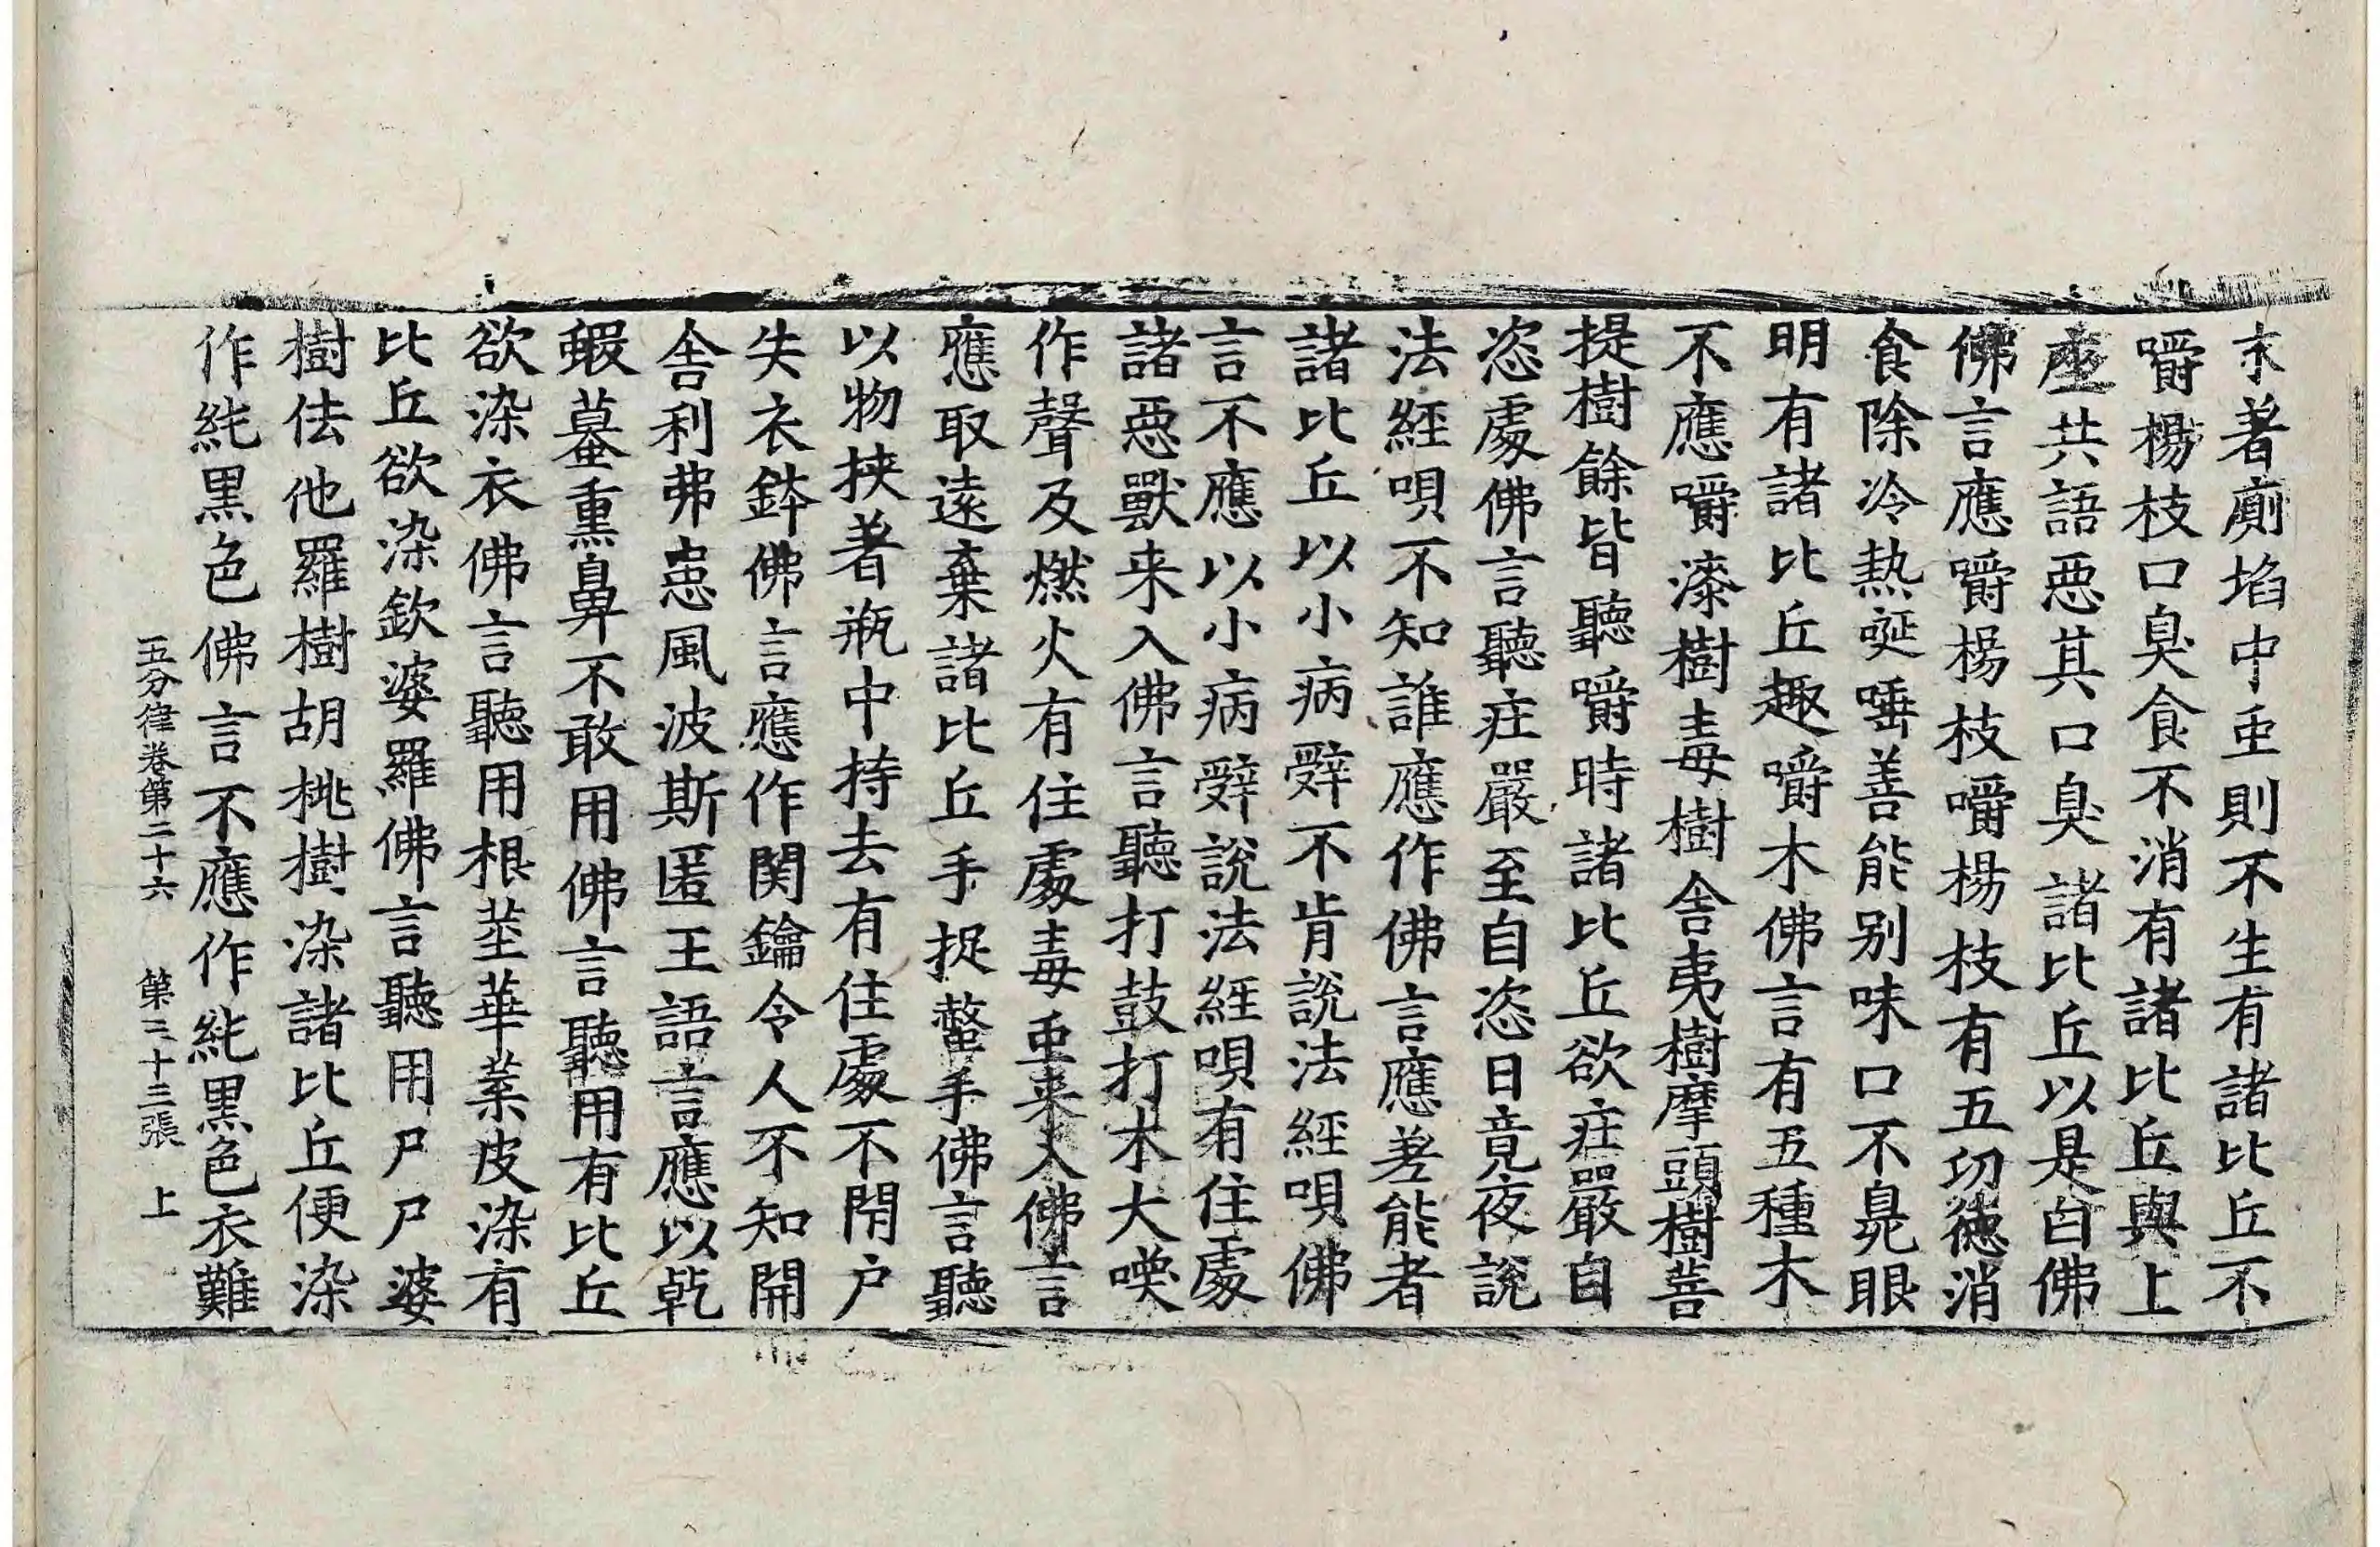 末著廁埳中䖝則不生有諸比丘不
嚼楊枝口臭食不消有諸比丘與上
座共語惡其口臭諸比丘以是白佛
佛言應嚼楊枝嚼楊枝有五㓛德消
食除冷熱唌唾善能别味口不臰眼
明有諸比丘趣嚼木佛言有五種木
不應嚼漆樹毒樹舍夷樹摩頭樹菩
提樹餘皆聽嚼時諸比丘欲疘嚴自
恣處佛言聽疘嚴至自恣日竟夜說
法經唄不知誰應作佛言應差能者
諸比丘以小病辤不肯說法經唄佛
言不應以小病辤說法經唄有住處
諸惡獸来入佛言聽打鼓打木大喚
作聲及燃火有住處毒䖝来入佛言
應取遠棄諸比丘手捉螫手佛言聽
以物挾著瓶中持去有住處不閇户
失衣鉢佛言應作関鑰令人不知開
舍利弗患風波斯匿王語言應以乾
蝦蟇熏鼻不敢用佛言聽用有比丘
欲染衣佛言聽用根莖華葉皮染有
比丘欲染欽婆羅佛言聽用尸尸婆
樹佉他羅樹胡桃樹染諸比丘便染
作純黒色佛言不應作純黒色衣難
五分律卷第二十六 第三十三張 上